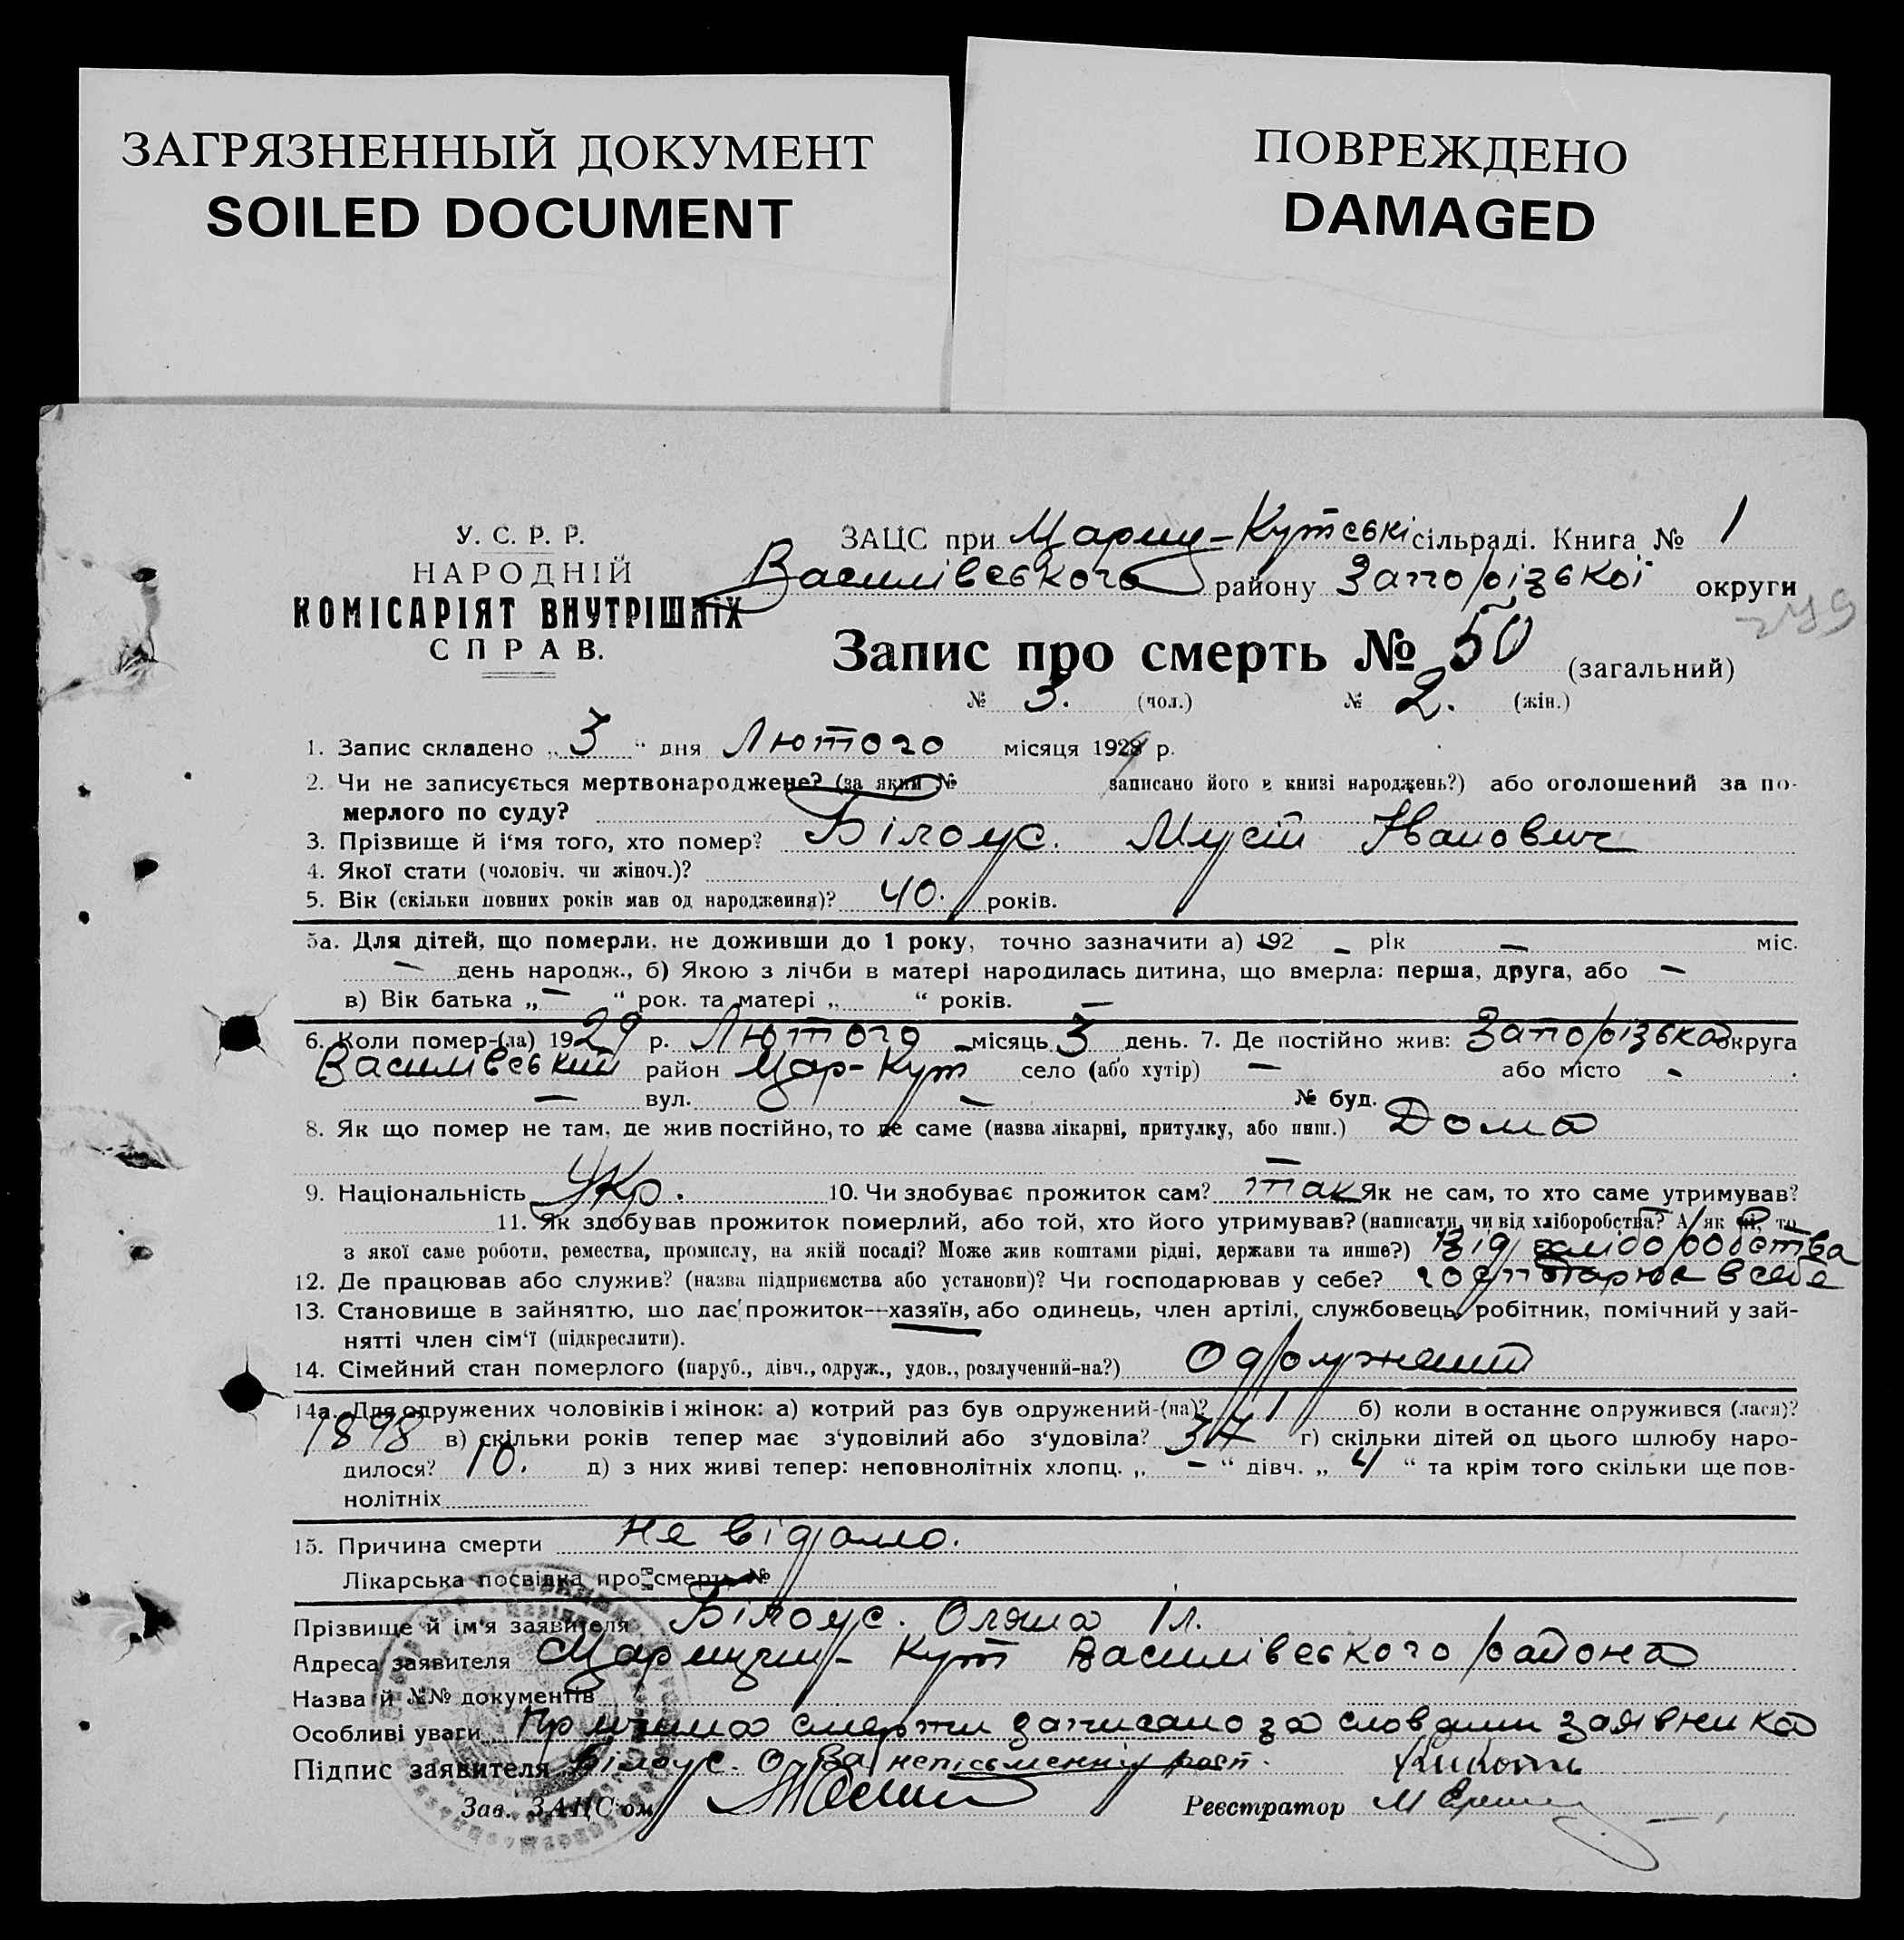 ЗАГРЯЗНЕННЫЙ ДОКУМЕНТ
SOILED DOCUMENT
ПОВРЕЖДЕНО
DAMAGED
У. С. Р. Р.
НАРОДНІЙ
КОМІСАРІЯТ ВНУТРІШНІХ
СПРАВ.
ЗАЦС при Марит-Кутській сільраді. Книга № 1
Василівського району Запорізької округи
Запис про смерть № 50 (загальний)
№ 3. (чол.) № 2. (жін.)
1. Запис складено „ 3 “ дня Лютого місяця 1929 р.
2. Чи не записується мертвонароджене? (за яким № записано його в книзі народжень?) або оголошений за по-
мерлого по суду?
3. Прізвище й і‘мя того, хто помер? Білоус. Мусій Іванович
4. Якої стати (чоловіч. чи жіноч.)?
5. Вік (скільки повних років мав од народження)? 40. років.
5а. Для дітей, що померли, не доживши до 1 року, точно зазначити а) 192 – рік – міс.
– день народж., б) Якою з лічби в матері народилась дитина, що вмерла: перша, друга, або –
в) Вік батька „ – “ рок. та матері „ “ років. –
6. Коли помер-(ла) 1929 р. Лютого місяць 3 день. 7. Де постійно жив: Запорізька округа
Василівський район Цар-Кут село (або хутір) – або місто -
– вул. – № буд.
8. Як що помер не там, де жив постійно, то де саме (назва лікарні, притулку, або инш.) Дома
–
9. Національність Укр. 10. Чи здобуває прожиток сам? так Як не сам, то хто саме утримував?
11. Як здобував прожиток померлий, або той, хто його утримував? (написати, чи від хліборобства? А як ні, то
з якої саме роботи, ремества, промислу, на якій посаді? Може жив коштами рідні, держави та инше?) Від хліборобства
12. Де працював або служив? (назва підприємства або установи)? Чи господарював у себе? господарюе в себе
13. Становище в зайняттю, що дає прожиток—хазяїн, або одинець, член артілі, службовець, робітник, помічний у зай-
нятті член сім‘ї (підкреслити).
14. Сімейний стан померлого (паруб., дівч., одруж., удов., розлучений-на?) Одружений
14а. Для одружених чоловіків і жінок: а) котрий раз був одружений-(на)? 1 б) коли в останнє одружився (лася)?
1898 в) скільки років тепер має з‘удовілий або з‘удовіла? 37 г) скільки дітей од цього шлюбу наро-
дилося? 10. д) з них живі тепер: неповнолітніх хлопц. „ – “ дівч. „ 4 “ та крім того скільки ще пов-
нолітніх
15. Причина смерти не відомо.
Лікарська посвідка про смерть №
Прізвище й ім‘я заявителя Білоус. Оляна Іл.
Адреса заявителя Царицин-Кут Василівського района
Назва й №№ документів
Особливі уваги Причина смерти записано за словами заявника
Підпис заявителя Білоус. О. За непісьменній росп.
Зав. ЗАЦС‘ом Реєстратор